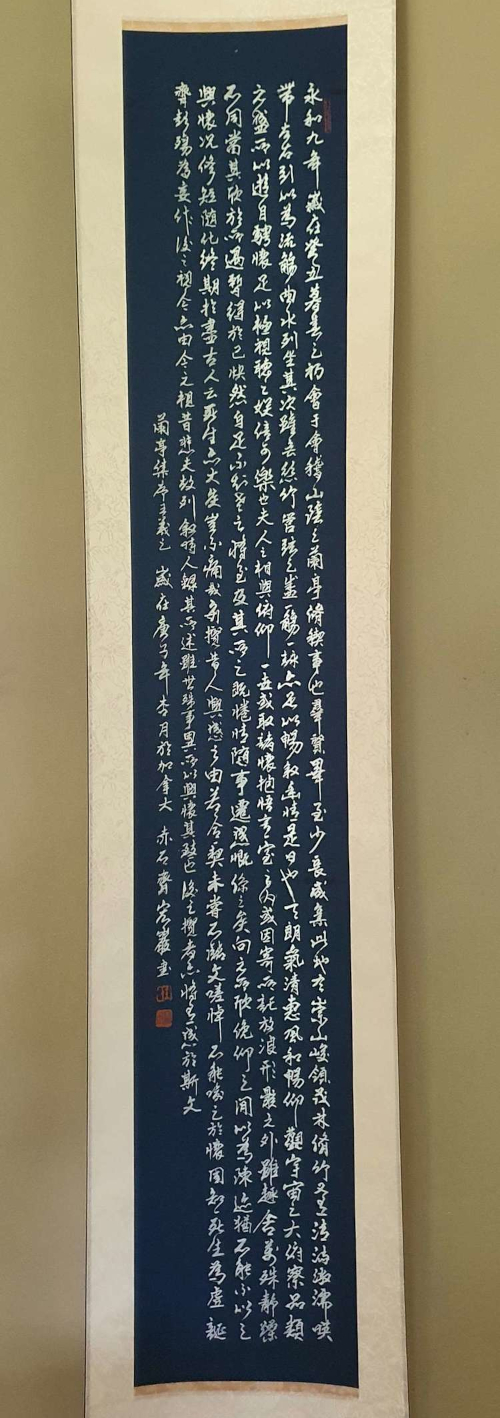 永和九年歲在癸丑暮春之初會于會稽山陰之蘭亭脩禊事也羣賢畢至少長咸集此地有崇山峻領茂林脩竹又有清流激湍暎
帶左右引以為流觴曲水列坐其次雖無絲竹管弦之盛一觴一詠亦足以暢叙幽情是日也天朗氣清惠風和暢仰觀宇宙之大俯察品類
之盛所以遊目騁懷足以極視聽之娛信可樂也夫人之相與俯仰一世或取諸懷抱悟言一室之內或因寄所託放浪形骸之外雖趣舍萬殊靜躁
不同當其欣於所遇暫得於己快然自足不知老之將至及其所之既惓情隨事遷感慨係之矣向之所欣俛仰之間以為陳迹猶不能不以之
興懷況脩短隨化終期於盡古人云死生亦大矣豈不痛哉每攬昔人興感之由若合一契未嘗不臨文嗟悼不能喻之於懷固知一死生為虛誕
齊彭殤為妄作後之視今亦由今之視昔悲夫故列叙時人錄其所述雖世殊事異所以興懷其致一也後之攬者亦將有感於斯文
蘭亭集序王羲之 歲在庚子年杏月於加拿大 赤石齋宏巖書